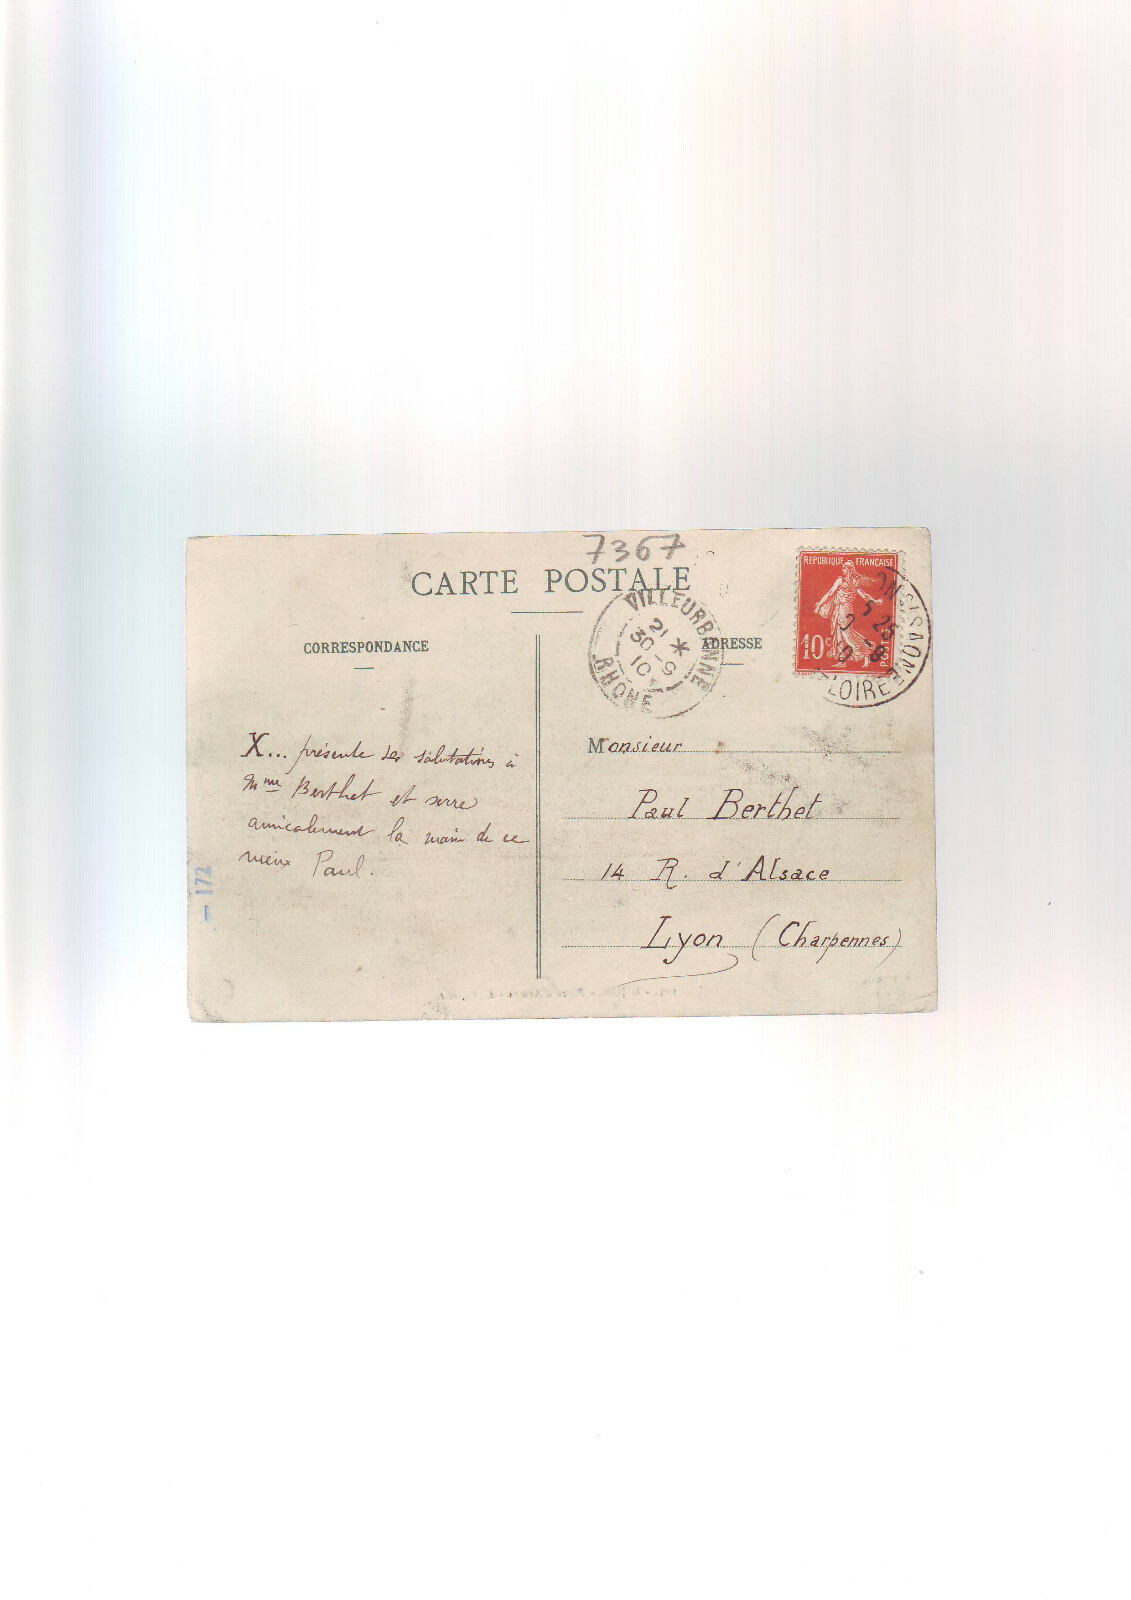 7367
CARTE POSTALE
CORRESPONDANCE
ADRESSE
REPUBLIQUE FRANÇAISE
10c
POSTES
VILLEURBANNE
21 *
30 -9
10
RHONE
S/SAONE
25 -8
LOIRE
X... présente ses salutations à
Mme Berthet et serre
amicalement la main de ce
vieux Paul.
Monsieur
Paul Berthet
14 R. d'Alsace
Lyon (Charpennes)
— 172